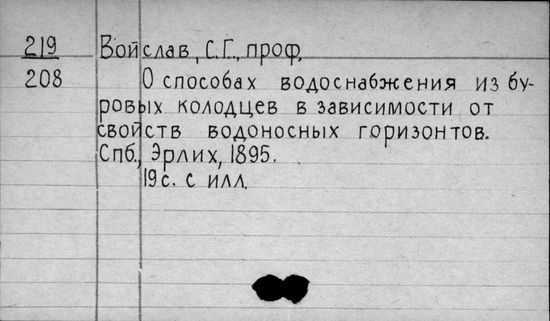 219 Войслав, С.Г., проф.
208 О способах водоснабжения из бу-
ровых колодцев в зависимости от
свойств водоносных горизонтов.
Спб., Эрлих, 1895.
19с. с илл.